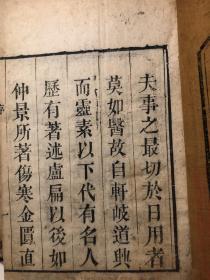 夫事之最切於日用者
莫如醫故自軒岐道興
而靈素以下代有名人
歷有著述盧扁以後如
仲景所著傷寒金匱直
序